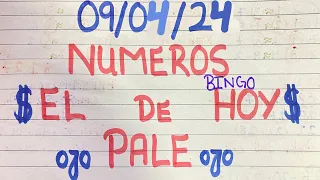 09/04/24
NUMEROS
BINGO
$EL DE HOY$
ojo PALE ojo